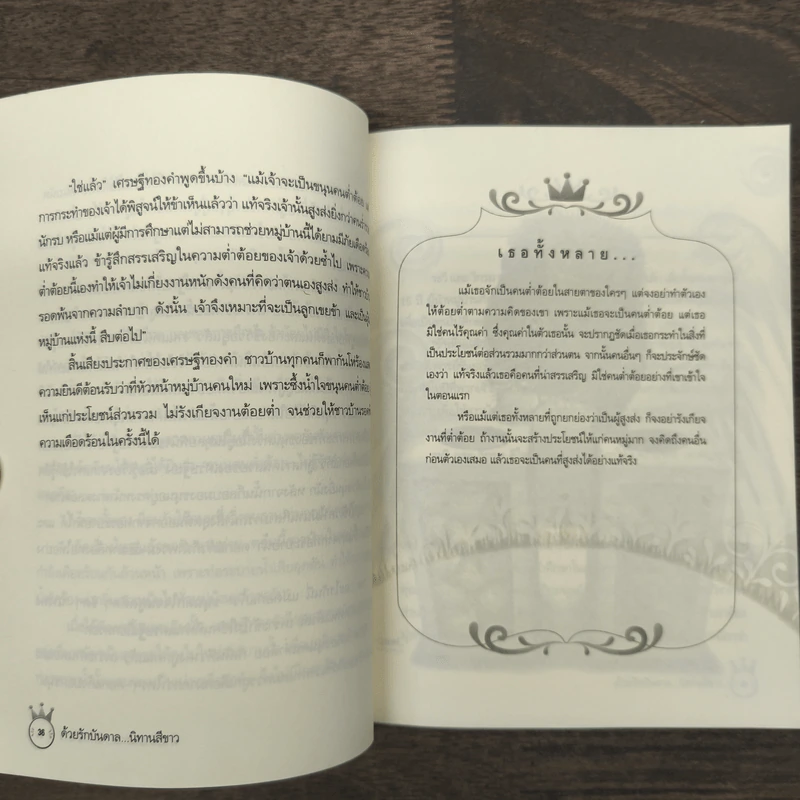 "ใช่แล้ว" เศรษฐีทองคำพูดขึ้นบ้าง "แม้เจ้าจะเป็นขนุนคนต่ำต้อย
การกระทำของเจ้าได้พิสูจน์ให้ข้าเห็นแล้วว่า แท้จริงเจ้านั้นสูงส่งยิ่งกว่าคน
นักรบ หรือแม้แต่ผู้มีการศึกษาแต่ไม่สามารถช่วยหมู่บ้านนี้ได้ยามมีภัยเดือด
แท้จริงแล้ว ข้ารู้สึกสรรเสริญในความต่ำต้อยของเจ้าด้วยซ้ำไป เพราะ
ต่ำต้อยนี้เองทำให้เจ้าไม่เกี่ยงงานหนักดังคนที่คิดว่าตนเองสูงส่ง ทำให้
รอดพ้นจากความลำบาก ดังนั้น เจ้าจึงเหมาะที่จะเป็นลูกเขยข้า และเป็น
หมู่บ้านแห่งนี้ สืบต่อไป"
สิ้นเสียงประกาศของเศรษฐีทองคำ ชาวบ้านทุกคนก็พากันโห่ร้อง
ความยินดีต้อนรับว่าที่หัวหน้าหมู่บ้านคนใหม่ เพราะซึ้งน้ำใจขนุนคนต่ำต้อย
เห็นแก่ประโยชน์ส่วนรวม ไม่รังเกียจงานต้อยต่ำ จนช่วยให้ชาวบ้านรอด
ความเดือดร้อนในครั้งนี้ได้
36 ด้วยรักบันดาล...นิทานสีขาว
เธอทั้งหลาย...
แม้เธอจักเป็นคนต่ำต้อยในสายตาของใครๆ แต่จงอย่าทำตัวเอง
ให้ต้อยต่ำตามความคิดของเขา เพราะแม้เธอจะเป็นคนต่ำต้อย แต่เธอ
มิใช่คนไร้คุณค่า ซึ่งคุณค่าในตัวเธอนั้น จะปรากฏชัดเมื่อเธอกระทำในสิ่งที่
เป็นประโยชน์ต่อส่วนรวมมากกว่าส่วนตน จากนั้นคนอื่นๆ ก็จะประจักษ์ชัด
เองว่า แท้จริงแล้วเธอคือคนที่น่าสรรเสริญ มิใช่คนต่ำต้อยอย่างที่เขาเข้าใจ
ในตอนแรก
หรือแม้แต่เธอทั้งหลายที่ถูกยกย่องว่าเป็นผู้สูงส่ง ก็จงอย่ารังเกียจ
งานที่ต่ำต้อย ถ้างานนั้นจะสร้างประโยชน์ให้แก่คนหมู่มาก จงคิดถึงคนอื่น
ก่อนตัวเองเสมอ แล้วเธอจะเป็นคนที่สูงส่งได้อย่างแท้จริง